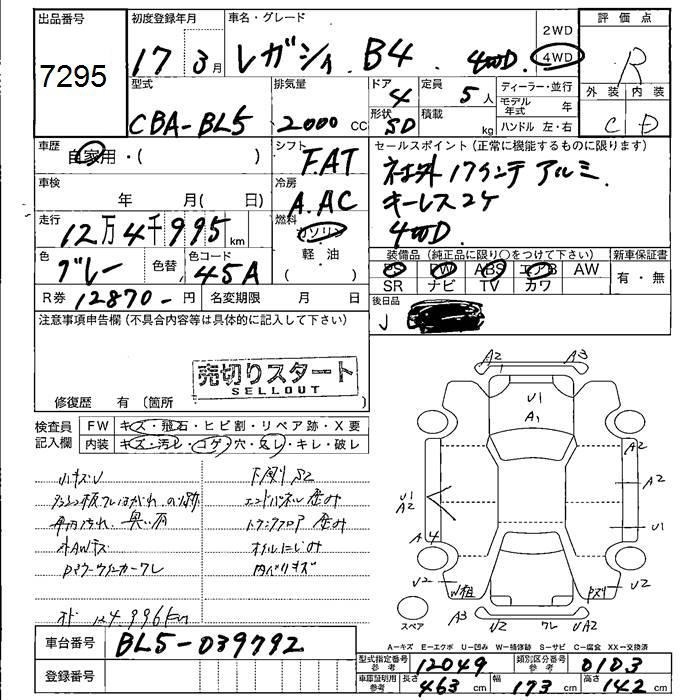 出品番号 初度登録年月 車名・グレード 2WD 評価点
7295 17 3月 レガシィ B4 4WD 4WD R
型式 排気量 ドア 4 定員 5人 ディーラー・並行 外装 内装
モデル年式 年
CBA-BL5 2000CC 形状 5D 積載 kg ハンドル 左・右 C D
車歴 シフト セールスポイント(正常に機能するものに限ります)
自家用・( ) F.AT
17インチ アルミ
車検 冷房 キーレス2ケ
年 月( 日) A.AC 4WD
走行 燃料
12万4千995km ガソリン
軽・油
色 色替 色コード 装備品(純正品に限り○をつけて下さい) 新車保証書
グレー 45A PS PW ABS エアB AW 有・無
SR ナビ TV カワ
R券 12870-円 名変期限 月 日 後日品
注意事項申告欄(不具合内容等は具体的に記入して下さい) J
売切りスタート
SELLOUT
修復歴 有(箇所
検査員記入欄 FW キズ・飛石・ヒビ割・リペア跡・X要
内装 キズ・汚レ・コゲ・穴・スレ・キレ・破レ
小キズU 下廻りS2
エンドパネル歪み
トランクフロア歪み
オイルにじみ
内ベリキズ
124,996km
A2 A3
U1
A1
A2
A2
U1
A2
U1
A4
U2 W粗 Pズ U2
スペア A3 U2 ワレ UA2
車台番号 BL5-039792
A-キズ E-エクボ U-凹み W-補修跡 S-サビ C-腐食 XX-交換済
型式指定番号参考 12049 類別区分番号参考 0103
登録番号 車庫証明用参考 長さ 463cm 幅 173cm 高さ 142cm